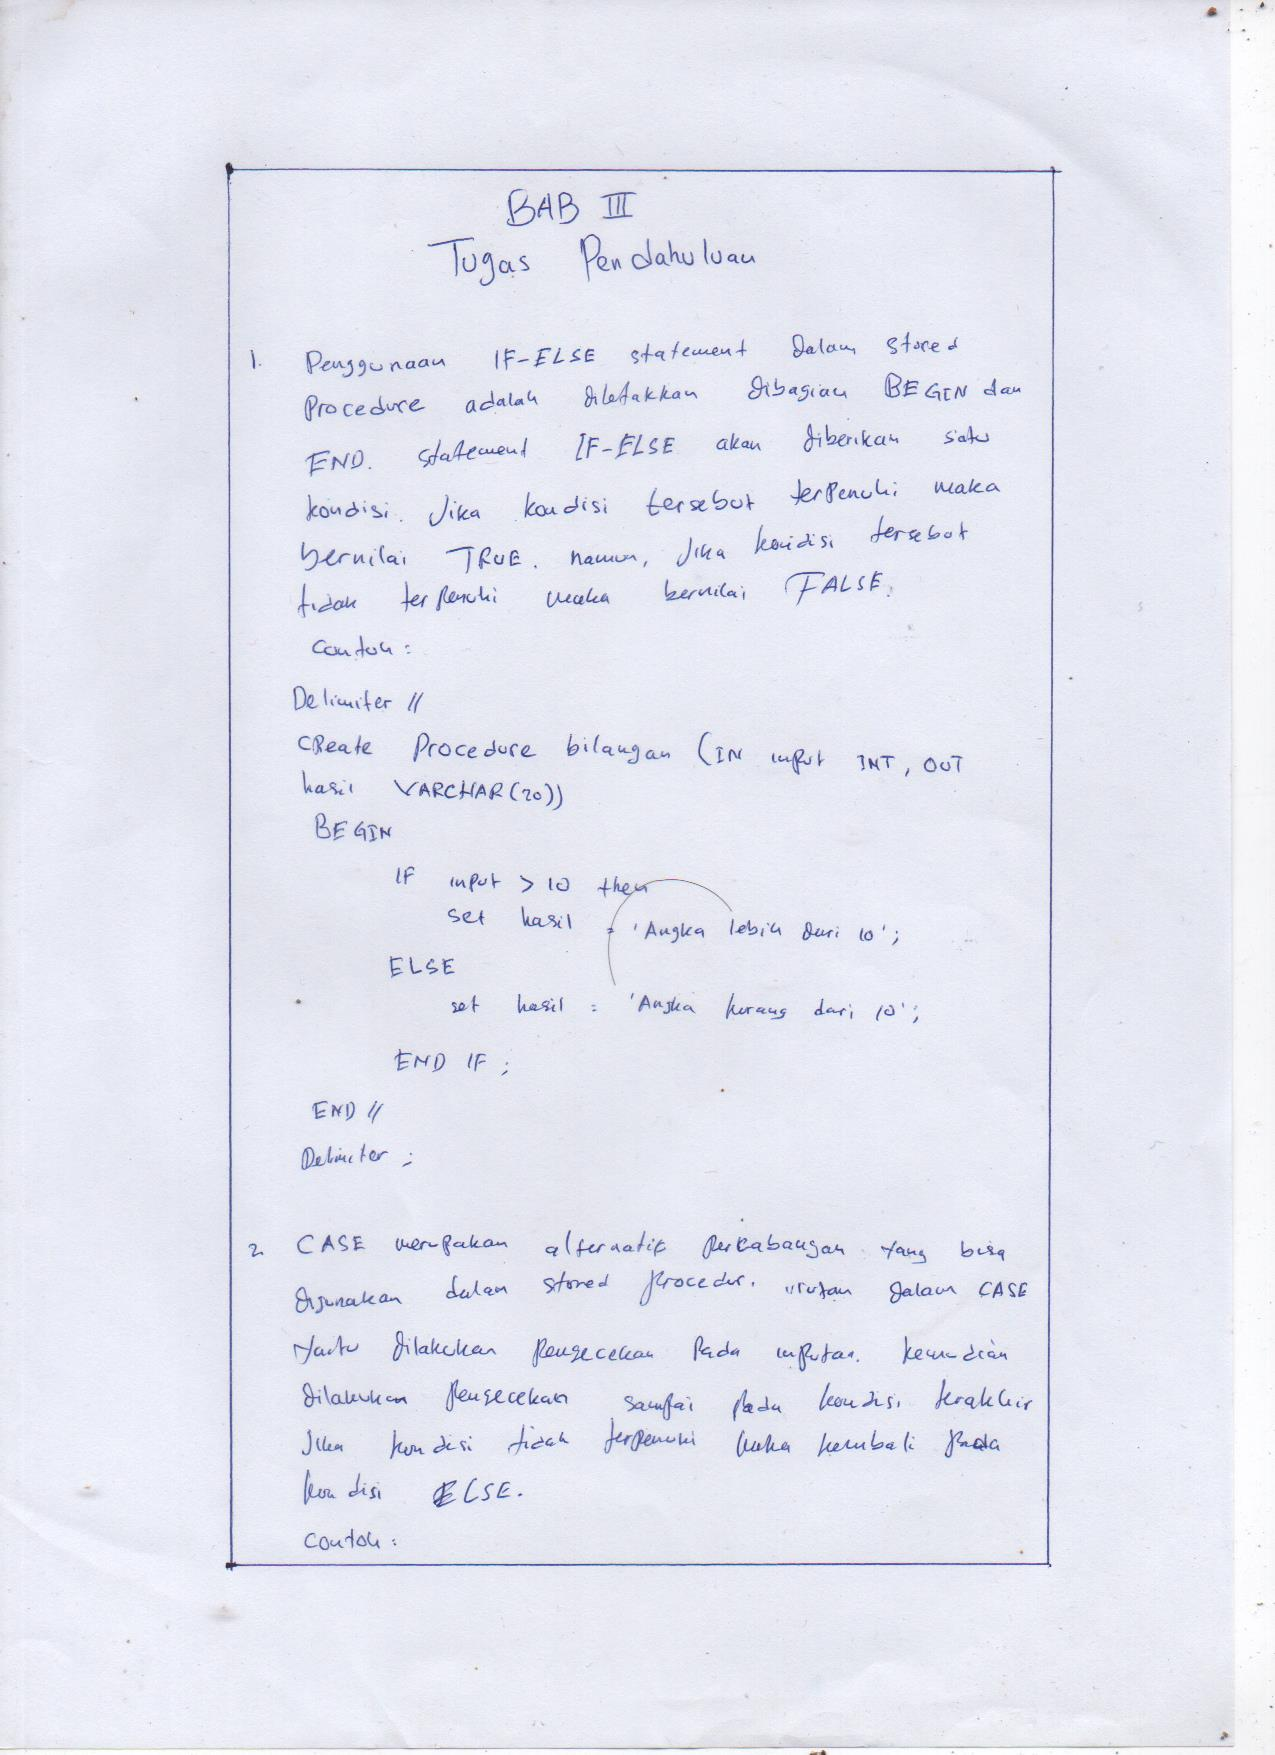 BAB III
Tugas Pendahuluan
1. Penggunaan IF-ELSE statement dalam stored
Procedure adalah diletakkan dibagian BEGIN dan
END. statement IF-ELSE akan diberikan satu
kondisi. Jika kondisi tersebut terpenuhi maka
bernilai TRUE. namun, Jika kondisi tersebut
tidak terpenuhi maka bernilai FALSE.
Contoh :
Delimiter //
Create Procedure bilangan (IN input INT, OUT
hasil VARCHAR(20))
BEGIN
IF input > 10 then
set hasil = 'Angka lebih dari 10';
ELSE
set hasil = 'Angka kurang dari 10';
END IF ;
END //
Delimiter ;
2. CASE merupakan alternatif percabangan yang bisa
digunakan dalam stored procedur. urutan dalam CASE
yaitu dilakukan pengecekan pada inputan. kemudian
dilakukan pengecekan sampai pada kondisi terakhir
Jika kondisi tidak terpenuhi maka kembali pada
kondisi ELSE.
Contoh :